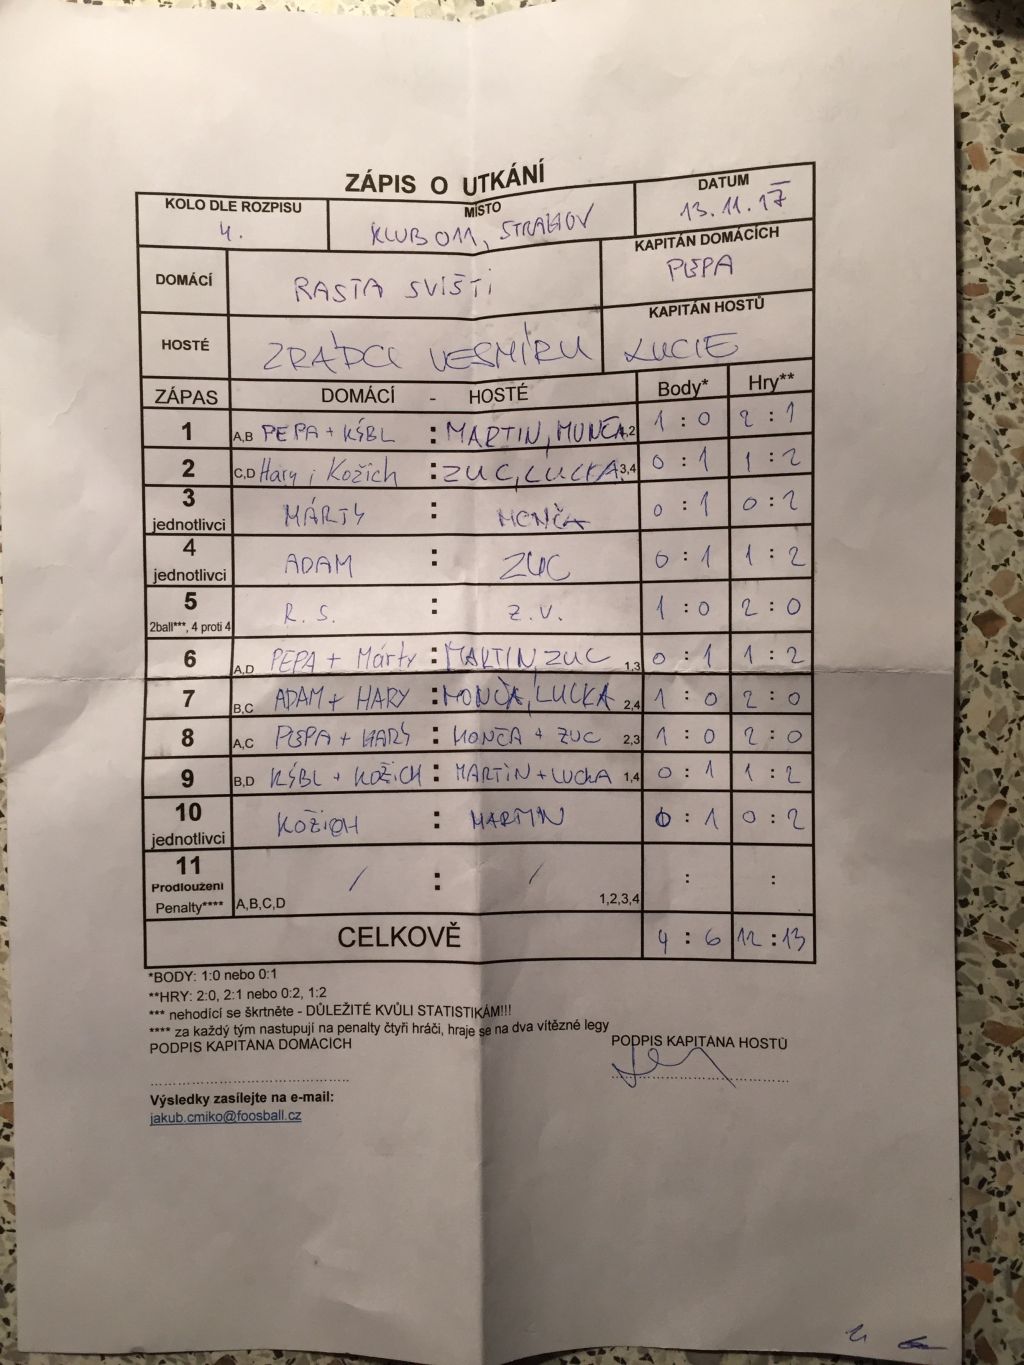 ZÁPIS O UTKÁNÍ
KOLO DLE ROZPISU
4.
MÍSTO
KLUB 011, STRAHOV
DATUM
13.11.17
DOMÁCÍ
RASTA SVIŠTI
KAPITÁN DOMÁCÍCH
PEPA
HOSTÉ
ZRÁDCI VESMÍRU
KAPITÁN HOSTŮ
LUCIE
ZÁPAS DOMÁCÍ - HOSTÉ Body* Hry**
1 A,B PEPA + KÝBL : MARTIN, MONČA 1,2 1 : 0 2 : 1
2 C,D Hary i Kožich : ZUC, LUCKA 3,4 0 : 1 1 : 2
3 jednotlivci MÁRTY : MONČA 0 : 1 0 : 2
4 jednotlivci ADAM : ZUC 0 : 1 1 : 2
5 2ball***, 4 proti 4 R. S. : Z.V. 1 : 0 2 : 0
6 A,D PEPA + Márty : MARTIN, ZUC 1,3 0 : 1 1 : 2
7 B,C ADAM + HARY : MONČA, LUCKA 2,4 1 : 0 2 : 0
8 A,C PEPA + HARY : MONČA + ZUC 2,3 1 : 0 2 : 0
9 B,D KÝBL + KOŽICH : MARTIN + LUCKA 1,4 0 : 1 1 : 2
10 jednotlivci KOŽICH : MARTIN 0 : 1 0 : 2
11 Prodloužení Penalty**** A,B,C,D / : / 1,2,3,4 : :
CELKOVĚ 4 : 6 12 : 13
*BODY: 1:0 nebo 0:1
**HRY: 2:0, 2:1 nebo 0:2, 1:2
*** nehodící se škrtněte - DŮLEŽITÉ KVŮLI STATISTIKÁM!!!
**** za každý tým nastupují na penalty čtyři hráči, hraje se na dva vítězné legy
PODPIS KAPITÁNA DOMÁCÍCH PODPIS KAPITÁNA HOSTŮ
Výsledky zasílejte na e-mail:
jakub.cmiko@foosball.cz